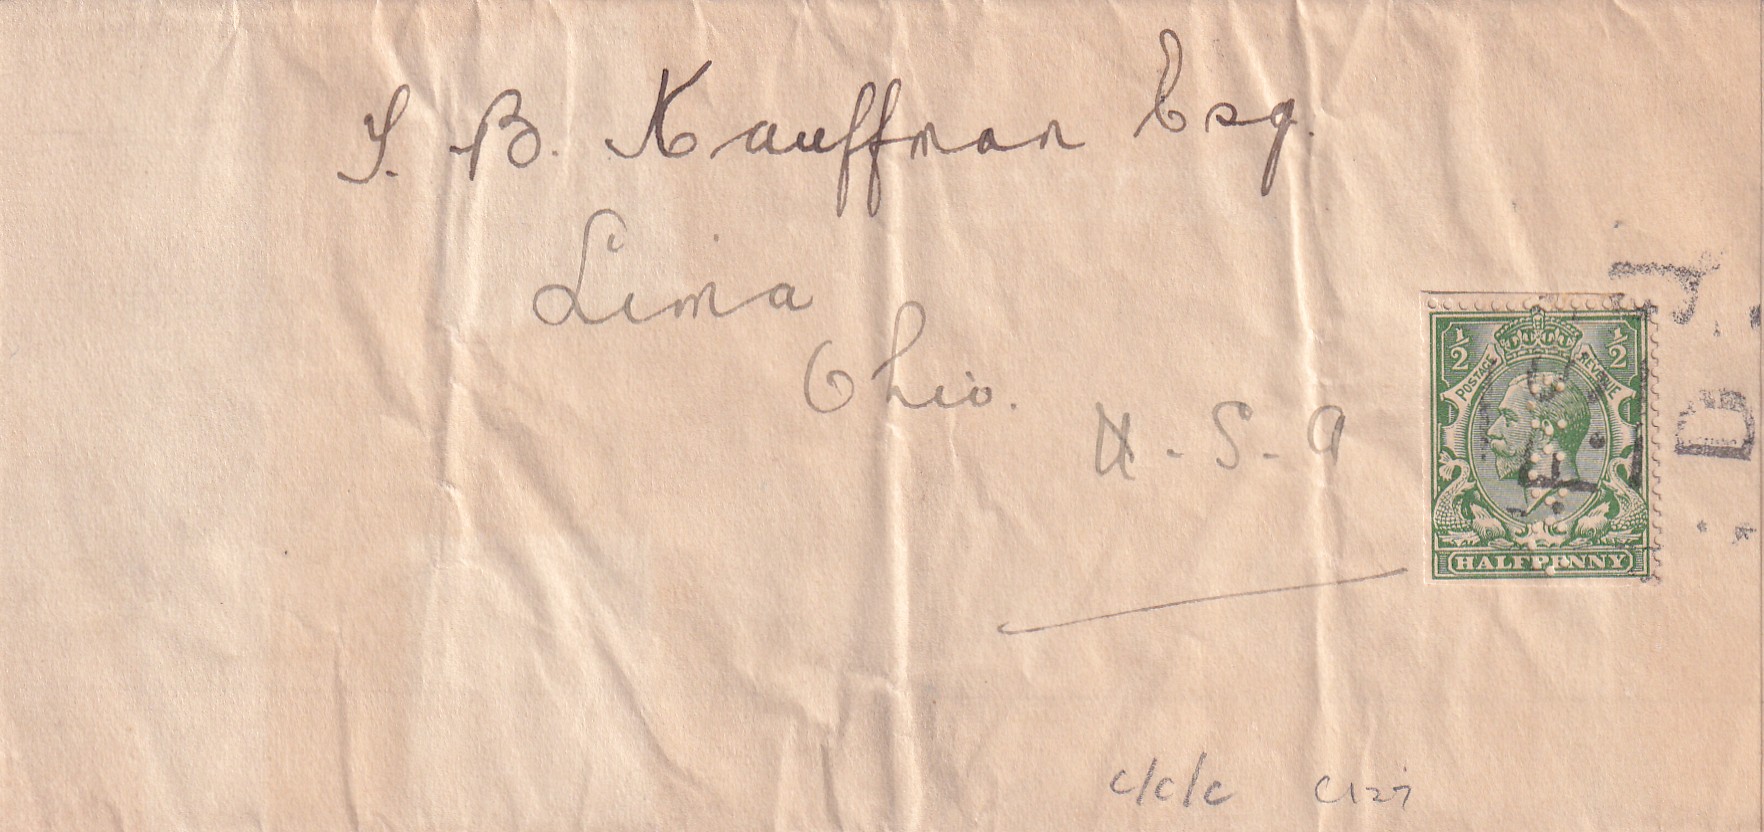 S. B. Kauffman Esq.
Lima
Ohio.
U. S. A
1/2 1/2
POSTAGE REVENUE
HALFPENNY
c/c/c C127